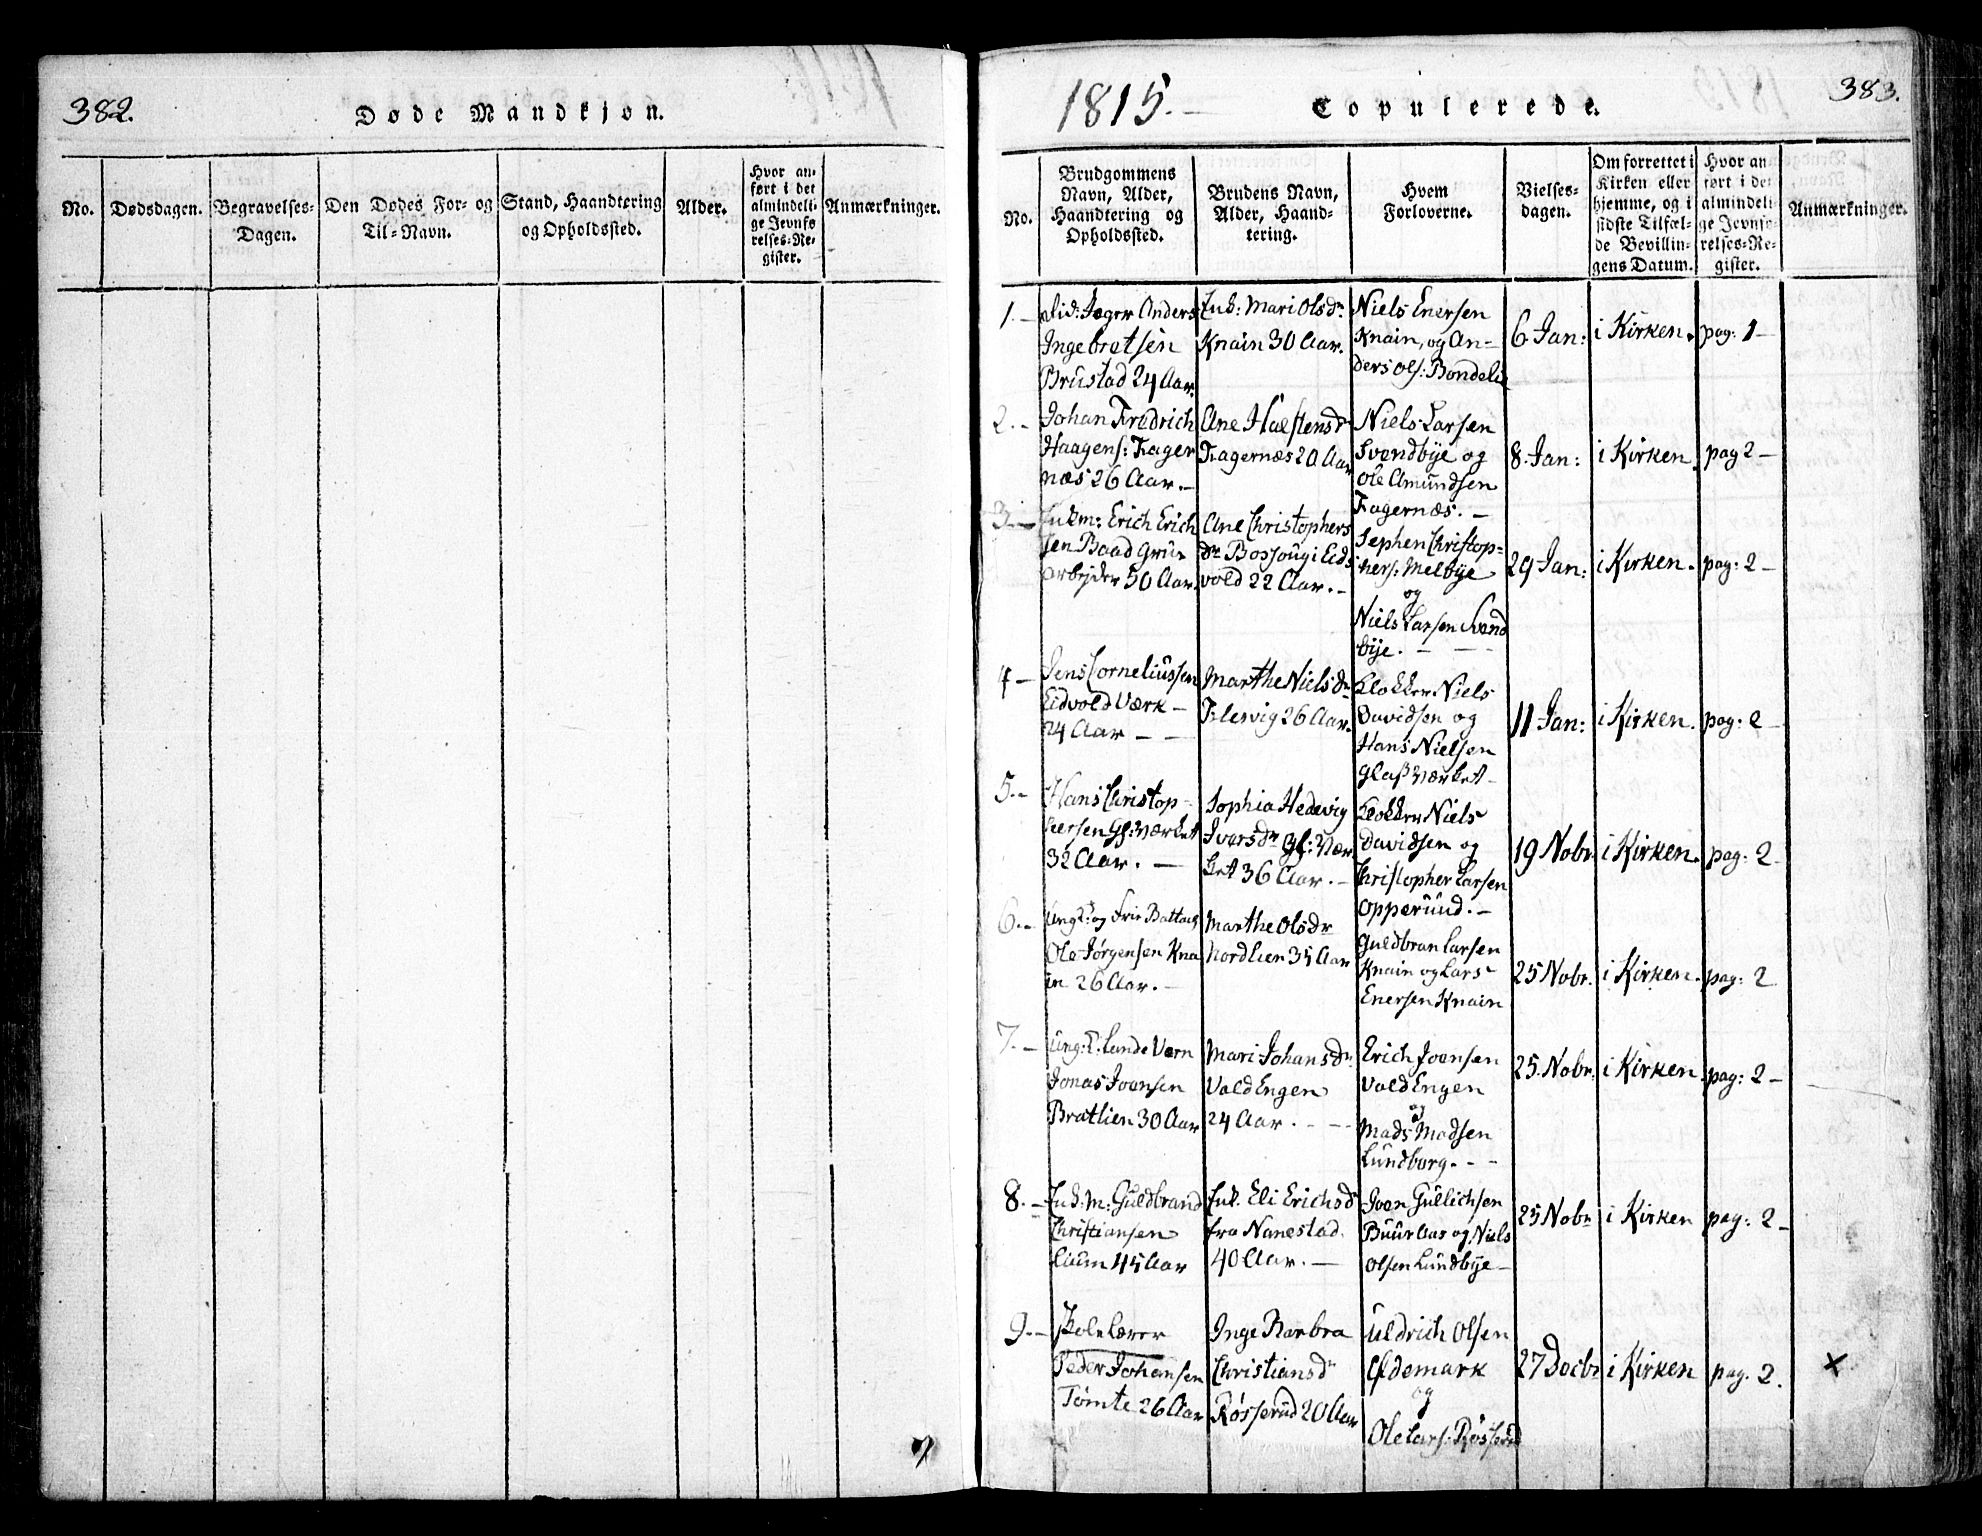 382.
Døde Mandkjøn.
No.
Dødsdagen.
Begravelses-
Dagen.
Den Dødes For- og
Til-Navn.
Stand, Haandtering
og Opholdssted.
Alder.
Hvor an-
ført i det
almindeli-
ge Jevnfø
relses-Re-
gister.
Anmærkninger.
1815.-
Copulerede.
383.
No.
Brudgommens
Navn, Alder,
Haandtering og
Opholdssted.
Brudens Navn,
Alder, Haand-
tering.
Hvem
Forloverne.
Vielses-
dagen.
Om forrettet i
Kirken eller
hjemme, og i
sidste Tilfæl-
de Bevillin-
gens Datum.
Hvor an
ført i det
almindeli-
ge Jevnfø-
relses-Re-
gister.
Anmærkninger.
1.-
Jæger Anders
Ingebretsen
Brustad 24 Aar.
Enk: Mari Olsdr
Knain 30 Aar.
Niels Enersen
Knain, og An-
ders Ols: Bondelie
6 Jan:
i Kirken.
pag: 1-
2.-
Johan Fredrich
Haagens: Fager
næs 26 Aar.-
Ane Halstensdr
Fagernæs 20 Aar
Niels Larsen
Svendbye og
Ole Amundsen
Fagernæs.-
8. Jan:
i Kirken.
pag 2-
3.-
Enkm: Erich Erich
sen Baad
arbejder 50 Aar.
Ane Christophers
dr i Eids
vold 22 Aar.-
Sephen Christop-
hers: Melbye
og
Niels Larsen Svend
bye.-
29 Jan:
i Kirken.
pag: 2-
4-
Jens Corneliussen
Eidvold Værk-
24 Aar--
Marthe Nielsdr
Flesvig 26 Aar.
Klokker Niels
Davidsen og
Hans Nielsen
Glasværket-
11 Jan:
i Kirken.
pag: 2-
5.-
Hans Christop-
hersen Gl: værket
32 Aar.-
Sophia Hedevig
Iversdr Gl: Vær
ket 36 Aar.-
Klokker Niels
Davidsen og
Christopher Larsen
Opperund.-
19 Nobr.
i Kirken.
pag: 2-
6.-
Ungk: og
Ole Jørgensen Kna
in 26 Aar.-
Marthe Olsdr
Nordlien 35 Aar
Guldbran Larsen
Knain og Lars
Enersen Knain
25 Nobr.
i Kirken.
pag: 2
7.-
Ung:k: Lande Værn
Jonas Joensen
Bratlien 30 Aar
Mari Johansdr
Vold Engen
24 Aar.---
Erich Joensen
Vold Engen
og
Mads Madsen
Lundborg.--
25. Nobr:
i Kirken.
pag: 2-
8.-
Enk: M: Guldbrand
Christiansen
45 Aar
Enk. Eli Erichsdr
fra Nanestad.
40 Aar.-
Joen Gullichsen
Buuraas og Niels
Olsen Lundbye-
25 Nobr
i Kirken
pag: 2-
9.-
Skolelærer
Peder Johansen
Tømte 26 Aar
Inge Barbra
Christiansdr
Røsserud 20 Aar
Uldrich Olsen
Ødemark
og
Ole Lars: Røsserud
27 Decbr
i Kirken
pag. 2.
x